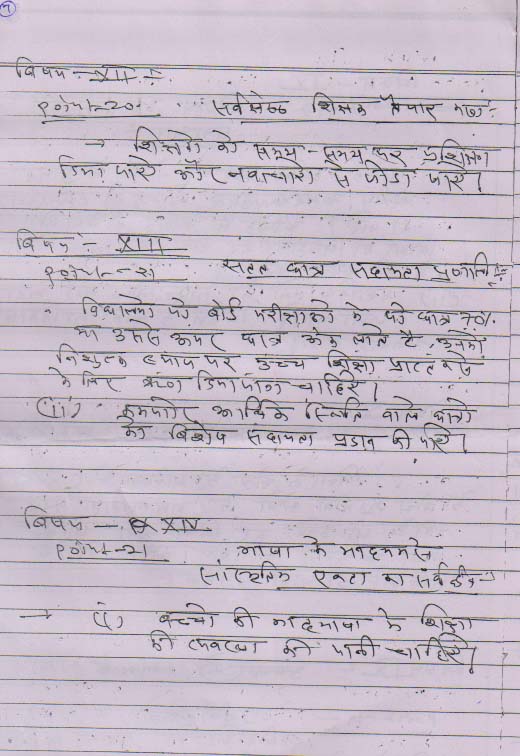 7
विषय - XII :-
Point-20- सर्वश्रेष्ठ शिक्षक तैयार करना :-
→ शिक्षको को समय-समय पर प्रशिक्षण
दिया जाये और नवाचारो से जोडा जाये।
विषय :- XIII
Point-21 सतत छात्र सहायता प्रणाली :-
विद्यालयो में बोर्ड परीक्षाओ में जो छात्र 70%
या उससे ऊपर प्राप्त अंक लाते है, उनको
ब्याज पर उच्च शिक्षा प्राप्त करने
के लिए ऋण दिया जाना चाहिए।
(ii) कमजोर आर्थिक स्थिति वाले छात्रो
को विशेष सहायता प्रदान की जाये।
विषय - XIV
Point-21 भाषा के माध्यम से
सांस्कृतिक एकता का
→ (i) बच्चो की मातृभाषा के शिक्षा
की व्यवस्था की जानी चाहिये।